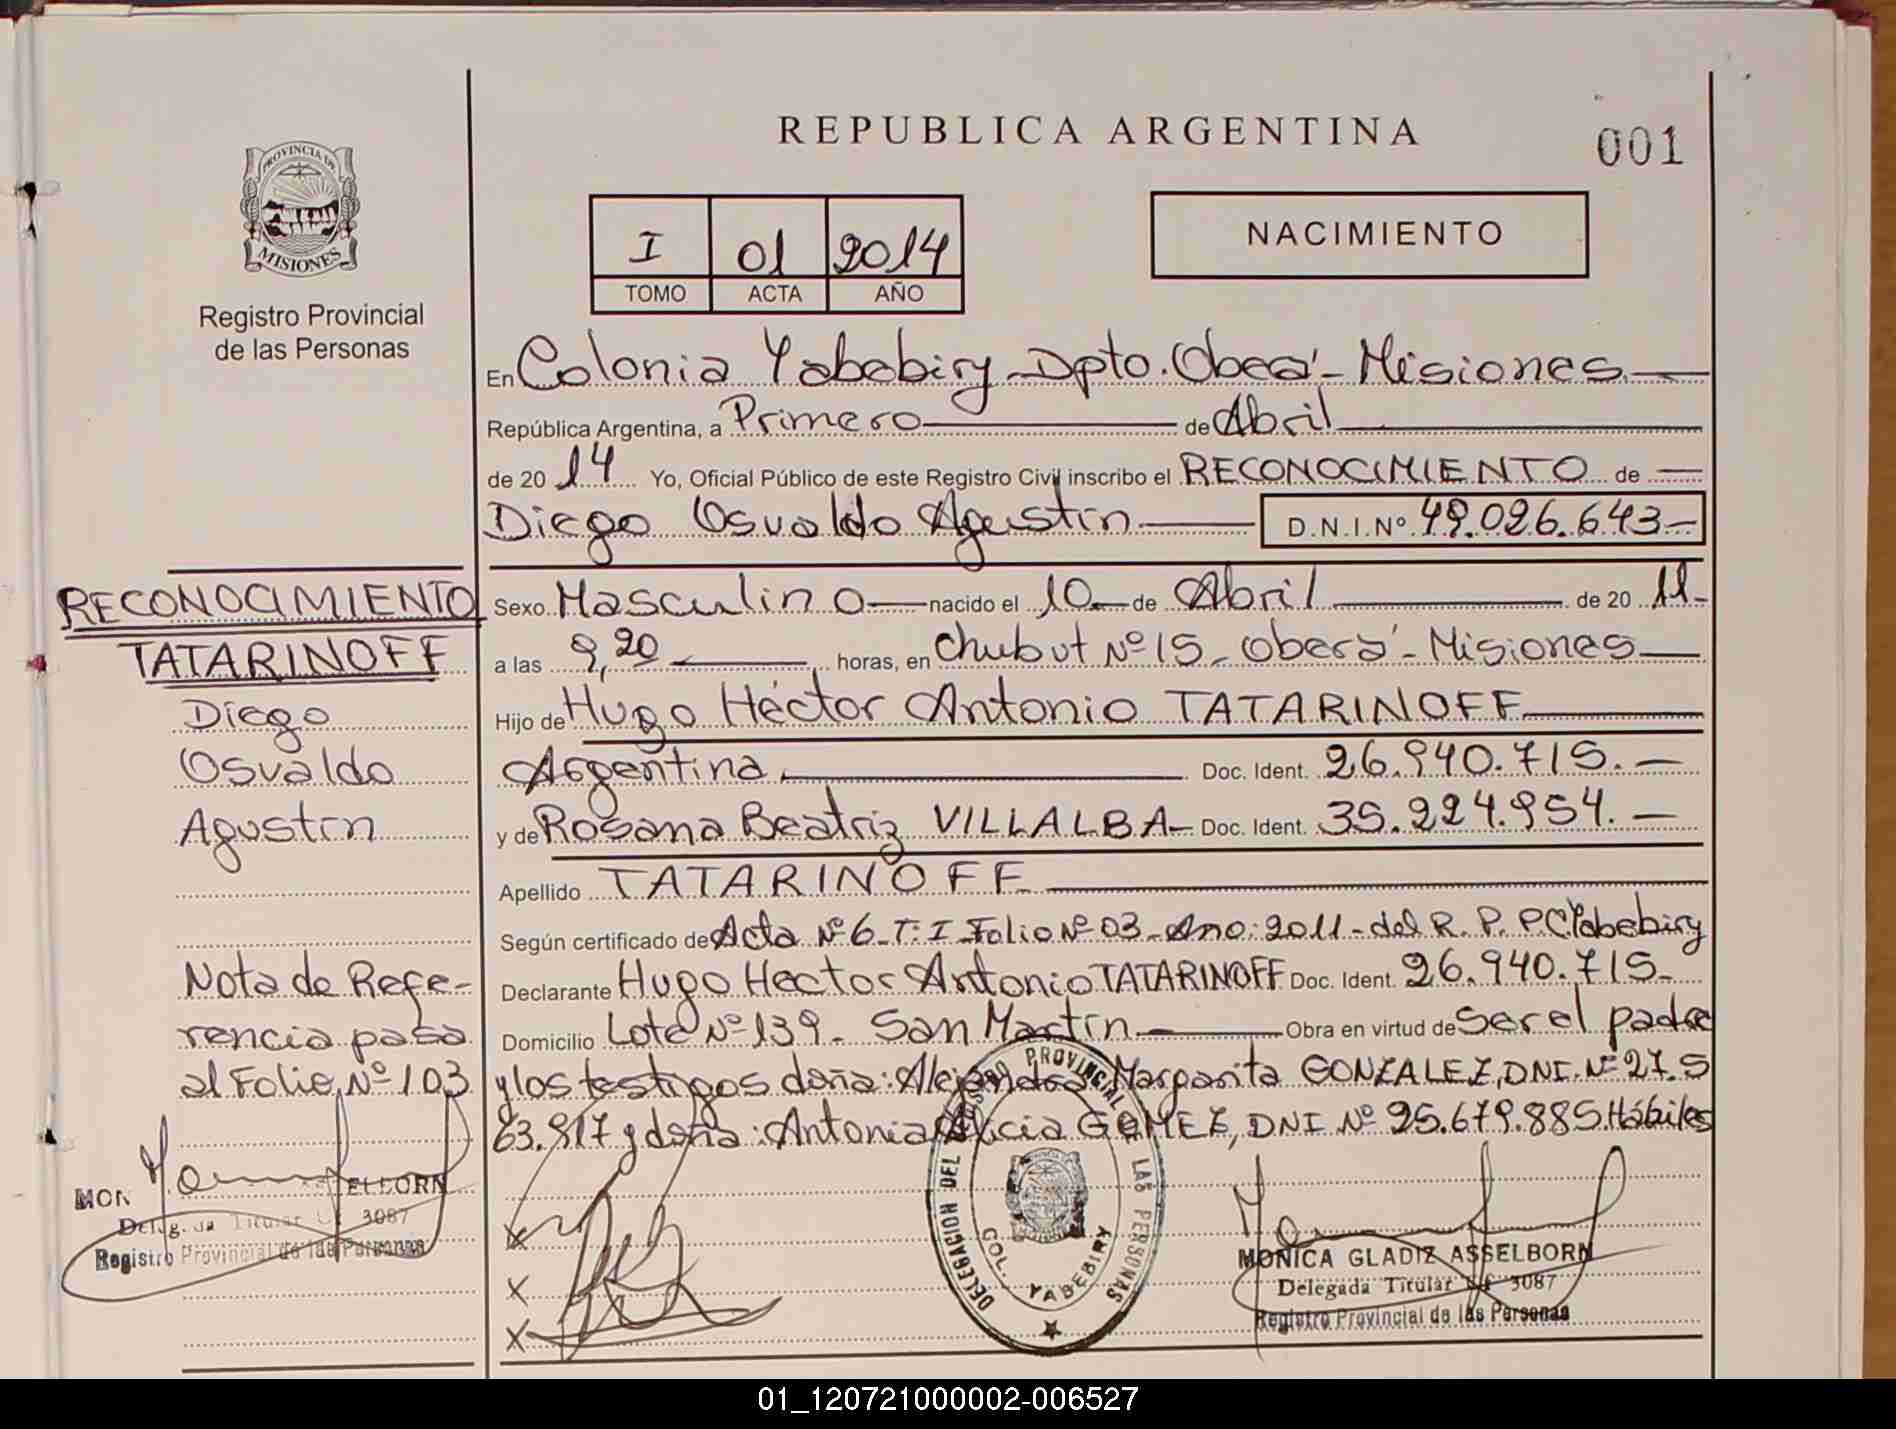 REPUBLICA ARGENTINA
001
PROVINCIA DE
MISIONES
Registro Provincial
de las Personas
I 01 2014
TOMO ACTA AÑO
NACIMIENTO
En Colonia Yabebiry - Dpto. Oberá - Misiones
República Argentina, a Primero de Abril
de 2014 Yo, Oficial Público de este Registro Civil inscribo el RECONOCIMIENTO de
Diego Osvaldo Agustín D.N.I.Nº 49.026.643-
Sexo Masculino nacido el 10 de Abril de 2011-
a las 9,20 horas, en Chubut Nº 15 - Oberá - Misiones
Hijo de Hugo Héctor Antonio TATARINOFF
Argentina Doc. Ident. 26.940.715.-
y de Rosana Beatriz VILLALBA - Doc. Ident. 35.224.954.-
Apellido TATARINOFF
Según certificado de Acta Nº 6 - T: I - Folio Nº 03 - Ano: 2011 - del R. P. P C/Yabebiry
Declarante Hugo Hector Antonio TATARINOFF Doc. Ident. 26.940.715-
Domicilio Lote Nº 139 - San Martín - Obra en virtud de Ser el padre
y los testigos doña: Alejandra Margarita GONZALEZ, DNI. Nº 27.5
63.817 y doña: Antonia Alicia GOMEZ, DNI Nº 25.679.885 Hábiles
RECONOCIMIENTO
TATARINOFF
Diego
Osvaldo
Agustín
Nota de Refe-
rencia pasa
al Folio Nº 103
MON ELBORN
Delegada Titular 3087
Registro Provincial de las Personas
X
X
X
DELEGACION DEL REGISTRO PROVINCIAL DE LAS PERSONAS
COL. YABEBIRY
MONICA GLADIZ ASSELBORN
Delegada Titular 3087
Registro Provincial de las Personas
01_120721000002-006527